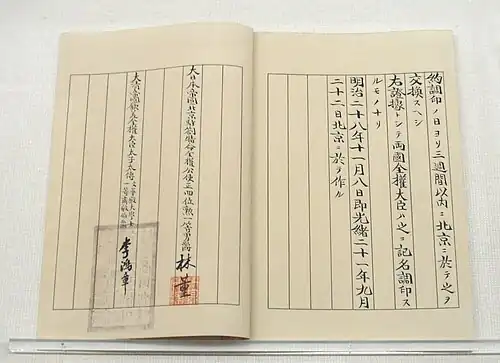 約調印ノ日ヨリ三週間以内ニ北京ニ於テ之ヲ
交換スヘシ
右證據トシテ両國全權大臣ハ之ニ記名調印ス
ルモノナリ
明治二十八年十一月八日即光緒二十一年九月
二十二日北京ニ於テ作ル
大日本帝國北京駐劄特命全權公使正四位勲一等男爵 林董
大清帝國欽差全權大臣太子太傅文華殿大學士一等肅毅伯 李鴻章